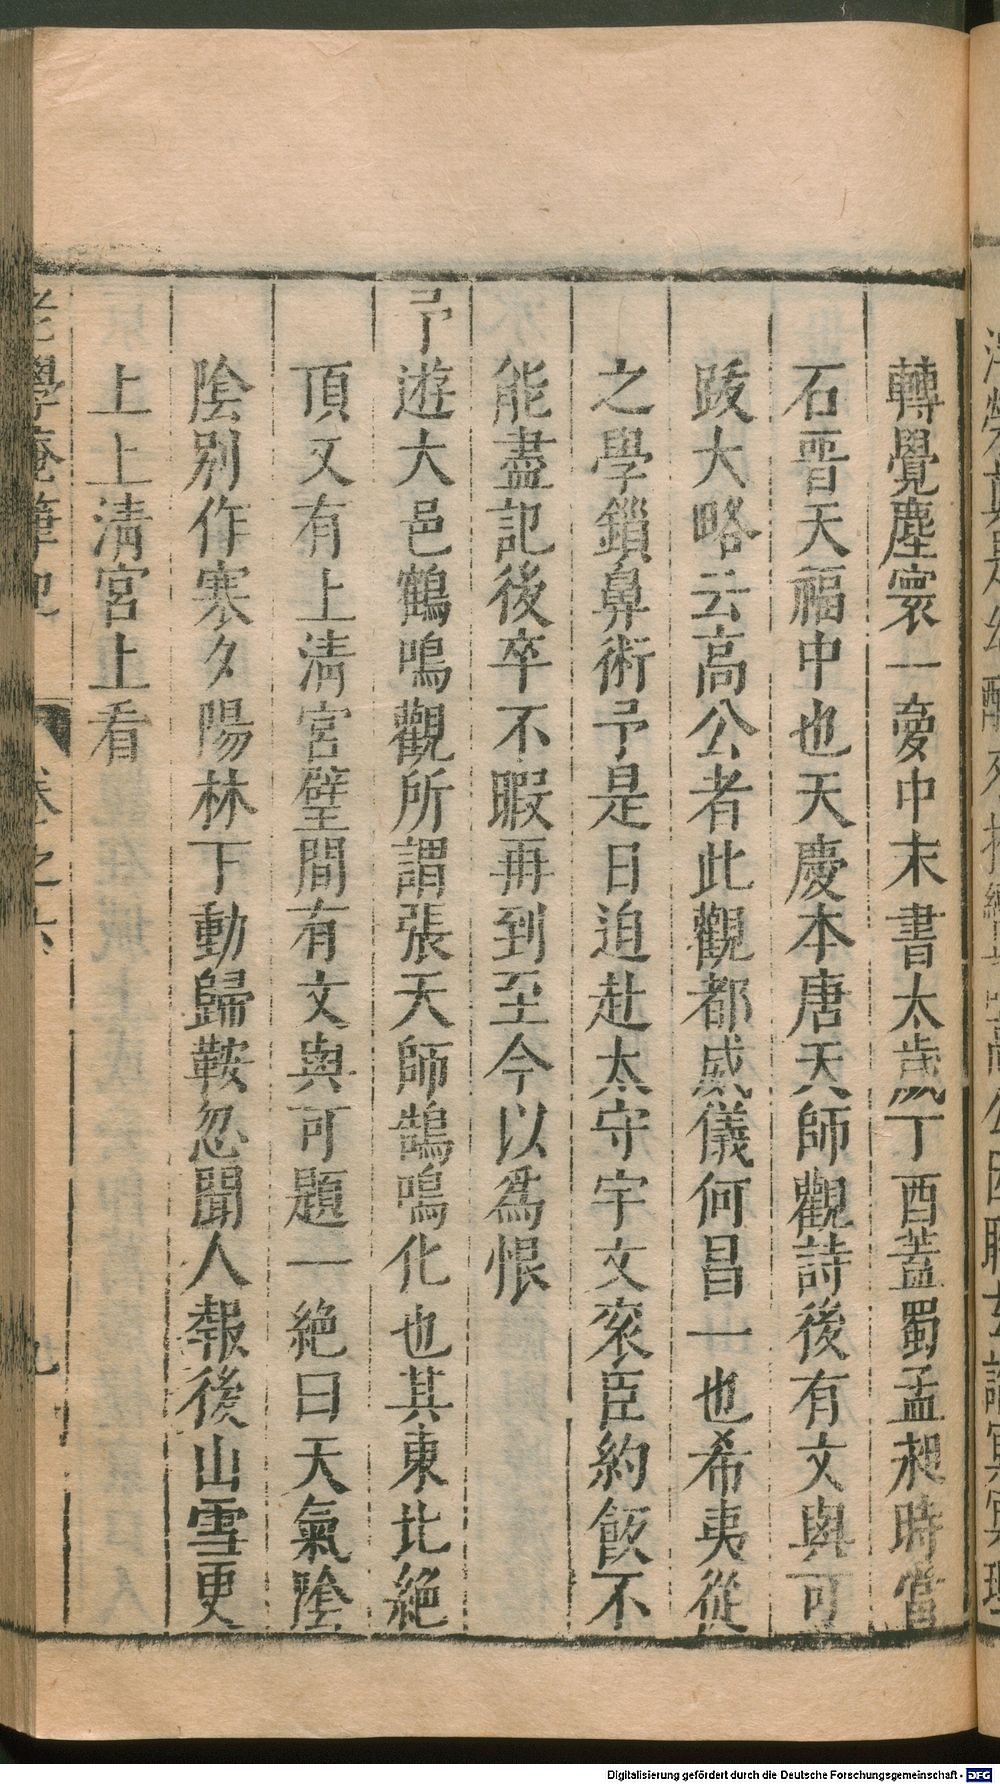 轉覺塵寰一夢中末書太歲丁酉蓋蜀孟昶時當
石晉天福中也天慶本唐天師觀詩後有文與可
跋大略云高公者此觀都威儀何昌一也希夷從
之學鎖鼻術予是日迫赴太守宇文衮臣約飯不
能盡記後卒不暇再到至今以爲恨
予遊大邑鶴鳴觀所謂張天師鵠鳴化也其東北絶
頂又有上清宮壁間有文與可題一絶曰天氣陰
陰別作寒夕陽林下動歸鞍忽聞人報後山雪更
上上清宮上看
老學庵筆記 卷之六 九
Digitalisierung gefördert durch die Deutsche Forschungsgemeinschaft - DFG